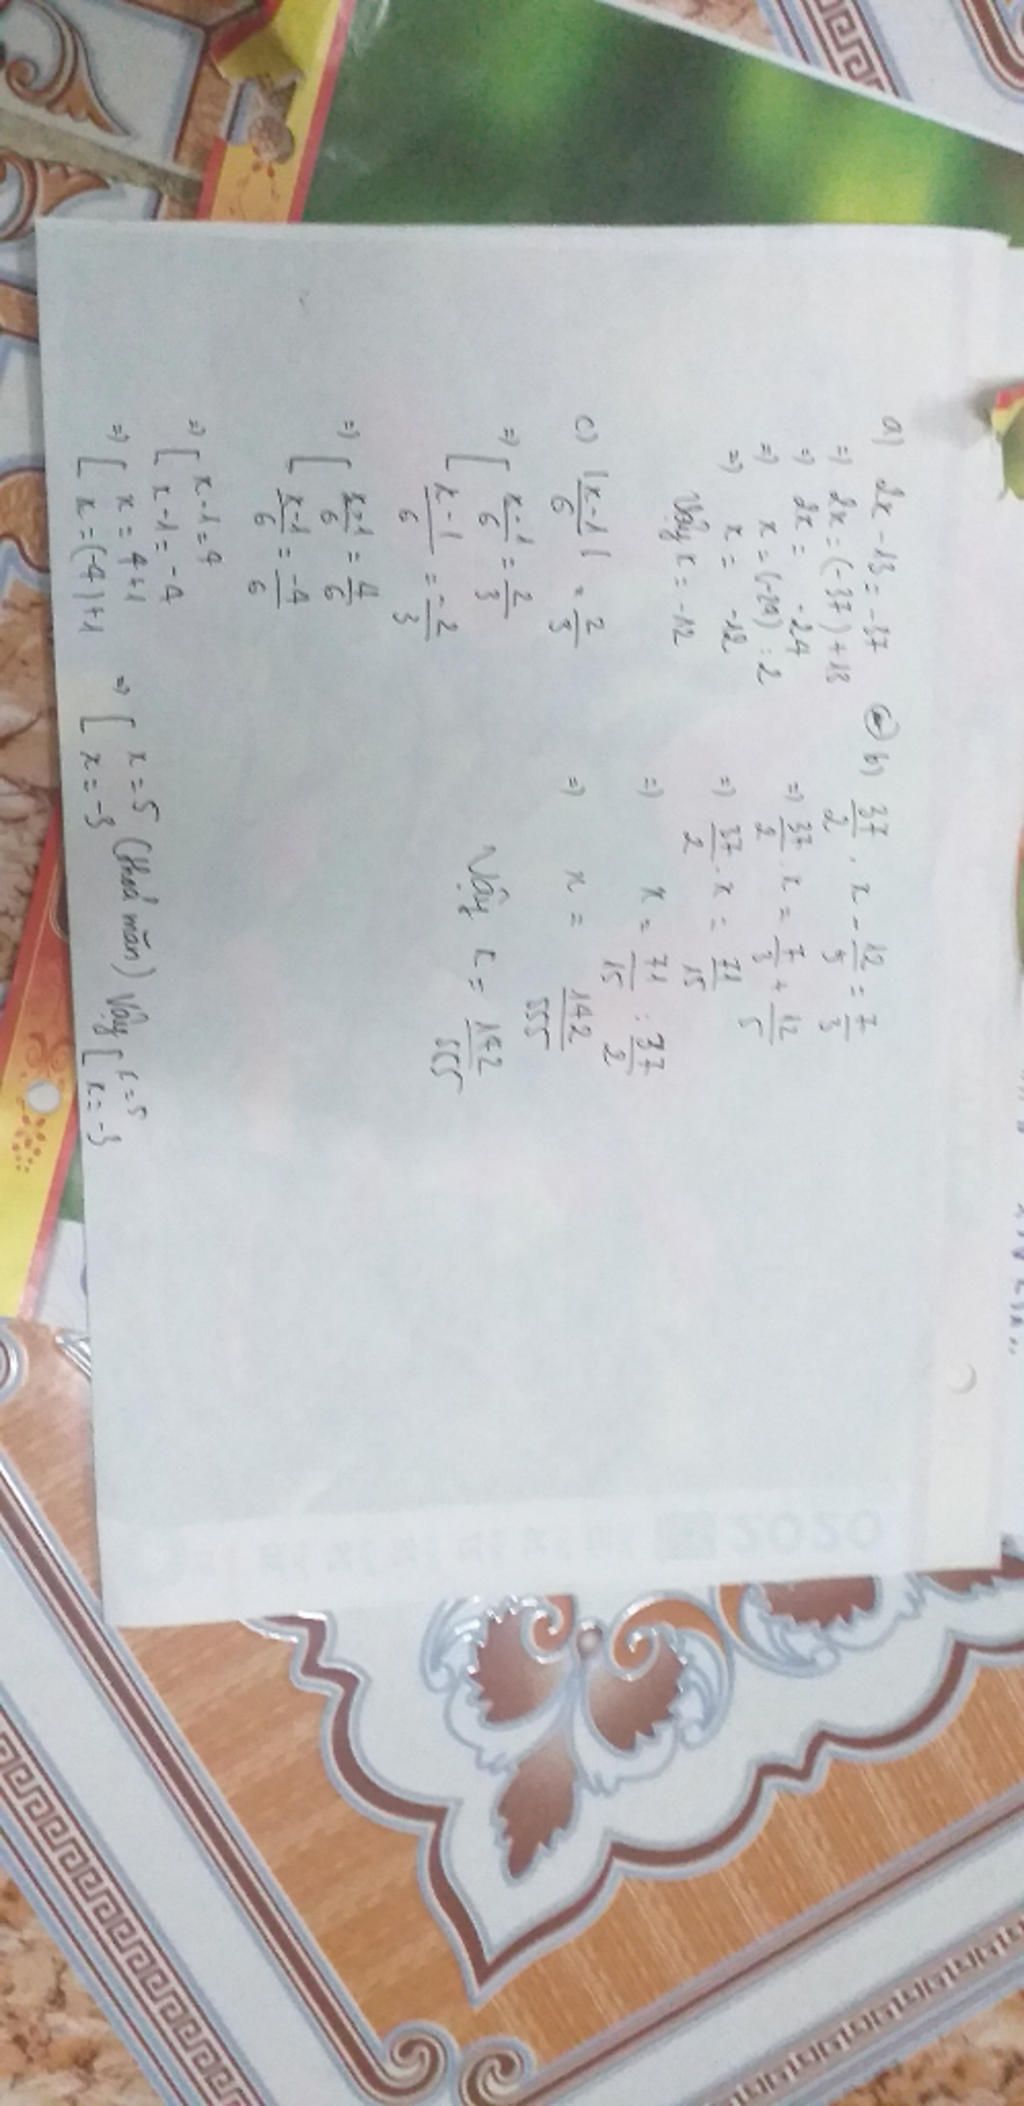 a) 2x - 13 = -37
=) 2x = (-37) + 13
=) 2x = -24
=) x = (-24) : 2
=) x = -12
Vậy x = -12
b) 37/2 . x - 12/5 = 7/3
=) 37/2 . x = 7/3 + 12/5
=) 37/2 . x = 71/15
=) x = 71/15 : 37/2
=) x = 142/555
Vậy x = 142/555
c) |x-1/6| = 2/3
=) [ x-1/6 = 2/3
[ x-1/6 = -2/3
=) [ x-1/6 = 4/6
[ x-1/6 = -4/6
=) [ x-1 = 4
[ x-1 = -4
=) [ x = 4+1
[ x = (-4)+1
=) [ x = 5
[ x = -3
(thoả mãn) Vậy [ x = 5
[ x = -3
2020